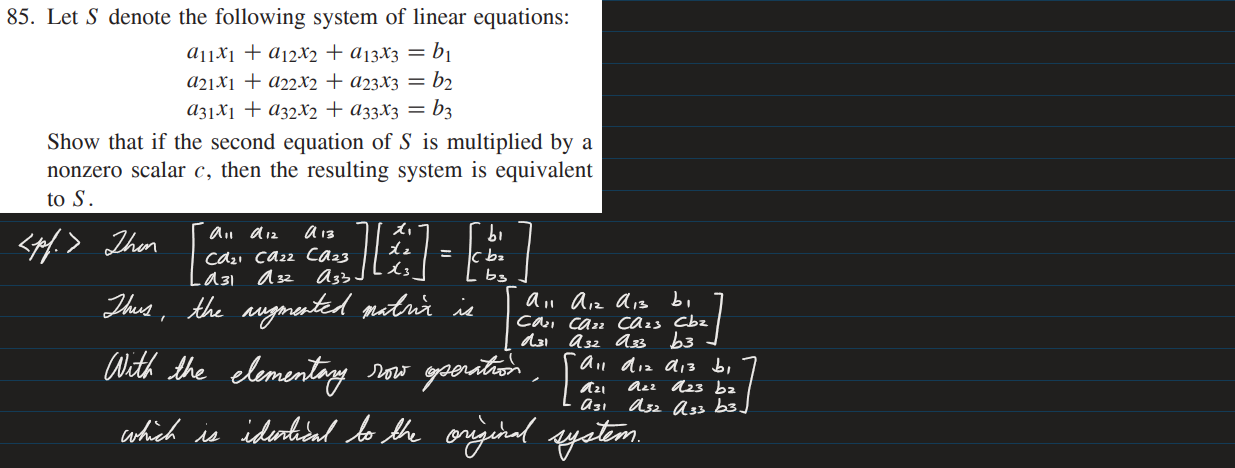 85. Let S denote the following system of linear equations:
a₁₁x₁ + a₁₂x₂ + a₁₃x₃ = b₁
a₂₁x₁ + a₂₂x₂ + a₂₃x₃ = b₂
a₃₁x₁ + a₃₂x₂ + a₃₃x₃ = b₃
Show that if the second equation of S is multiplied by a
nonzero scalar c, then the resulting system is equivalent
to S.
<pf.> Then [a₁₁ a₁₂ a₁₃; ca₂₁ ca₂₂ ca₂₃; a₃₁ a₃₂ a₃₃] [x₁; x₂; x₃] = [b₁; cb₂; b₃]
Thus, the augmented matrix is [a₁₁ a₁₂ a₁₃ b₁; ca₂₁ ca₂₂ ca₂₃ cb₂; a₃₁ a₃₂ a₃₃ b₃]
With the elementary row operation, [a₁₁ a₁₂ a₁₃ b₁; a₂₁ a₂₂ a₂₃ b₂; a₃₁ a₃₂ a₃₃ b₃]
which is identical to the original system.